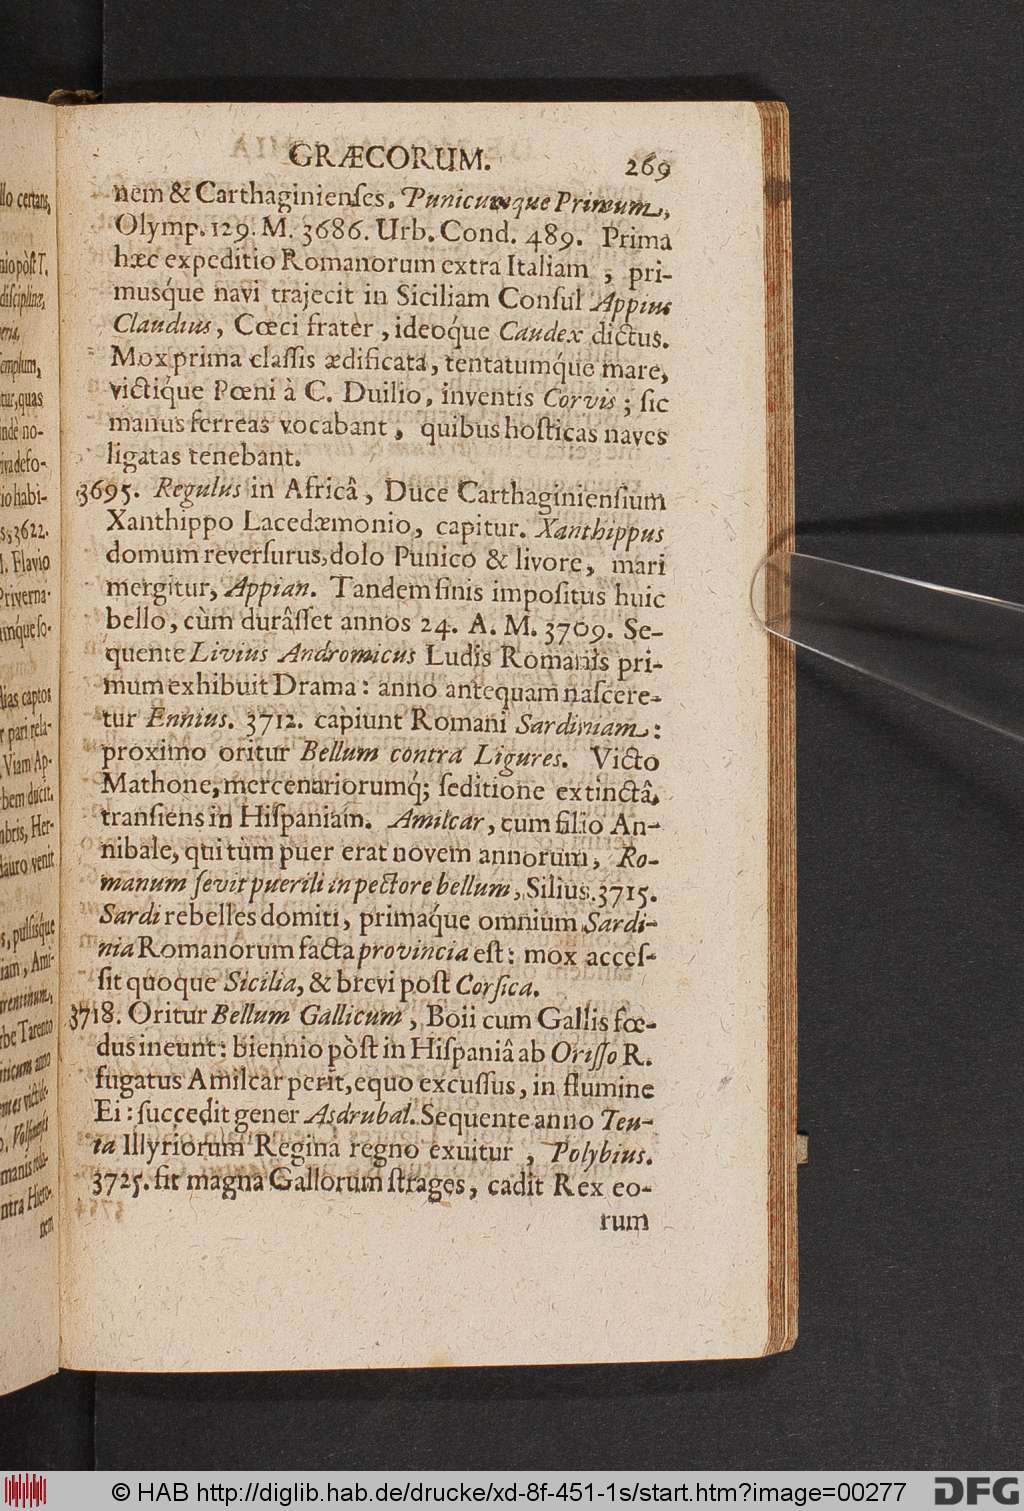 GRÆCORUM. 269
nem & Carthaginienſes. Punicumque Primum,
Olymp. 129. M. 3686. Urb. Cond. 489. Prima
hæc expeditio Romanorum extra Italiam, pri-
musq́ue navi trajecit in Siciliam Conſul Appius
Claudius, Cœci frater, ideoq́ue Caudex dictus.
Mox prima claſſis ædificata, tentatumq́ue mare,
victiq́ue Pœni à C. Duilio, inventis Corvis; ſic
manus ferreas vocabant, quibus hoſticas naves
ligatas tenebant.
3695. Regulus in Africâ, Duce Carthaginienſium
Xanthippo Lacedæmonio, capitur. Xanthippus
domum reverſurus, dolo Punico & livore, mari
mergitur, Appian. Tandem finis impoſitus huic
bello, cùm durâſſet annos 24. A. M. 3709. Se-
quente Livius Andronicus Ludis Romanis pri-
mum exhibuit Drama: anno antequam naſcere-
tur Ennius. 3712. capiunt Romani Sardiniam:
proximo oritur Bellum contra Ligures. Victo
Mathone, mercenariorumq́; ſeditione extinctâ,
tranſiens in Hiſpaniam. Amilcar, cum filio An-
nibale, qui tùm puer erat novem annorum, Ro-
manum ſevit puerili in pectore bellum, Silius. 3715.
Sardi rebelles domiti, primaq́ue omnium Sardi-
nia Romanorum facta provincia eſt: mox acceſ-
ſit quoque Sicilia, & brevi poſt Corſica.
3718. Oritur Bellum Gallicum, Boii cum Gallis fœ-
dus ineunt: biennio pòſt in Hiſpaniâ ab Oriſſo R.
fugatus Amilcar perit, equo excuſſus, in flumine
Ei: ſuccedit gener Asdrubal. Sequente anno Teu-
ta Illyriorum Regina regno exuitur, Polybius.
3725. fit magna Gallorum ſtrages, cadit Rex eo-
rum
llo certans,
nio pòſt T.
diſciplinæ,
templum,
tur, quas
indè no-
iva defo-
io habi-
s, 3622.
M. Flavio
Priverna-
umq́ue ſo-
lias captos
r pari rela-
Viam Ap-
bem ducit.
mbris, Her-
dauro venit
s, pulſiſq́ue
iam, Ami-
rentinum,
rbe Tarento
nticum anno
ntra Hiero-
nem
© HAB http://diglib.hab.de/drucke/xd-8f-451-1s/start.htm?image=00277
DFG